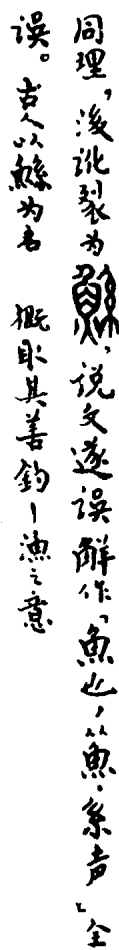 同理，後訛裂为鯀，说文遂误解作「魚也，从魚·系声」全
误。古人以鯀为名　概取其善钓－渔之意